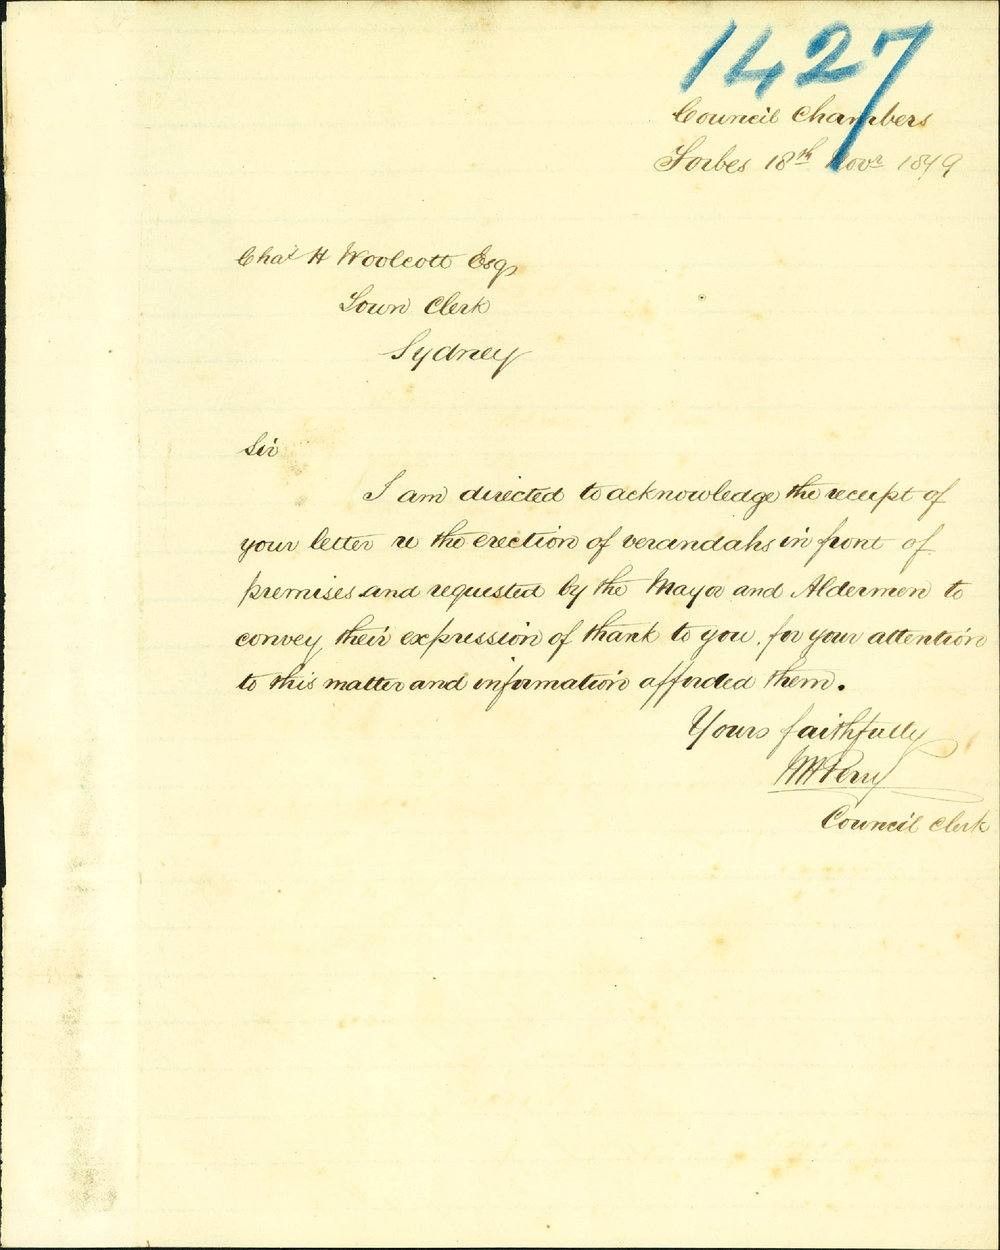 1427
Council Chambers
Forbes 18th Novr 1879
Chas H Woolcott Esqr
Town Clerk
Sydney
Sir
I am directed to acknowledge the receipt of
your letter re the erection of verandahs in front of
premises and requested by the Mayor and Aldermen to
convey their expression of thank to you, for your attention
to this matter and information afforded them.
Yours faithfully
Perry
Council Clerk